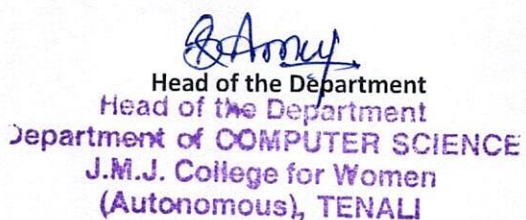 Head of the Department
Head of the Department
Department of COMPUTER SCIENCE
J.M.J. College for Women
(Autonomous), TENALI